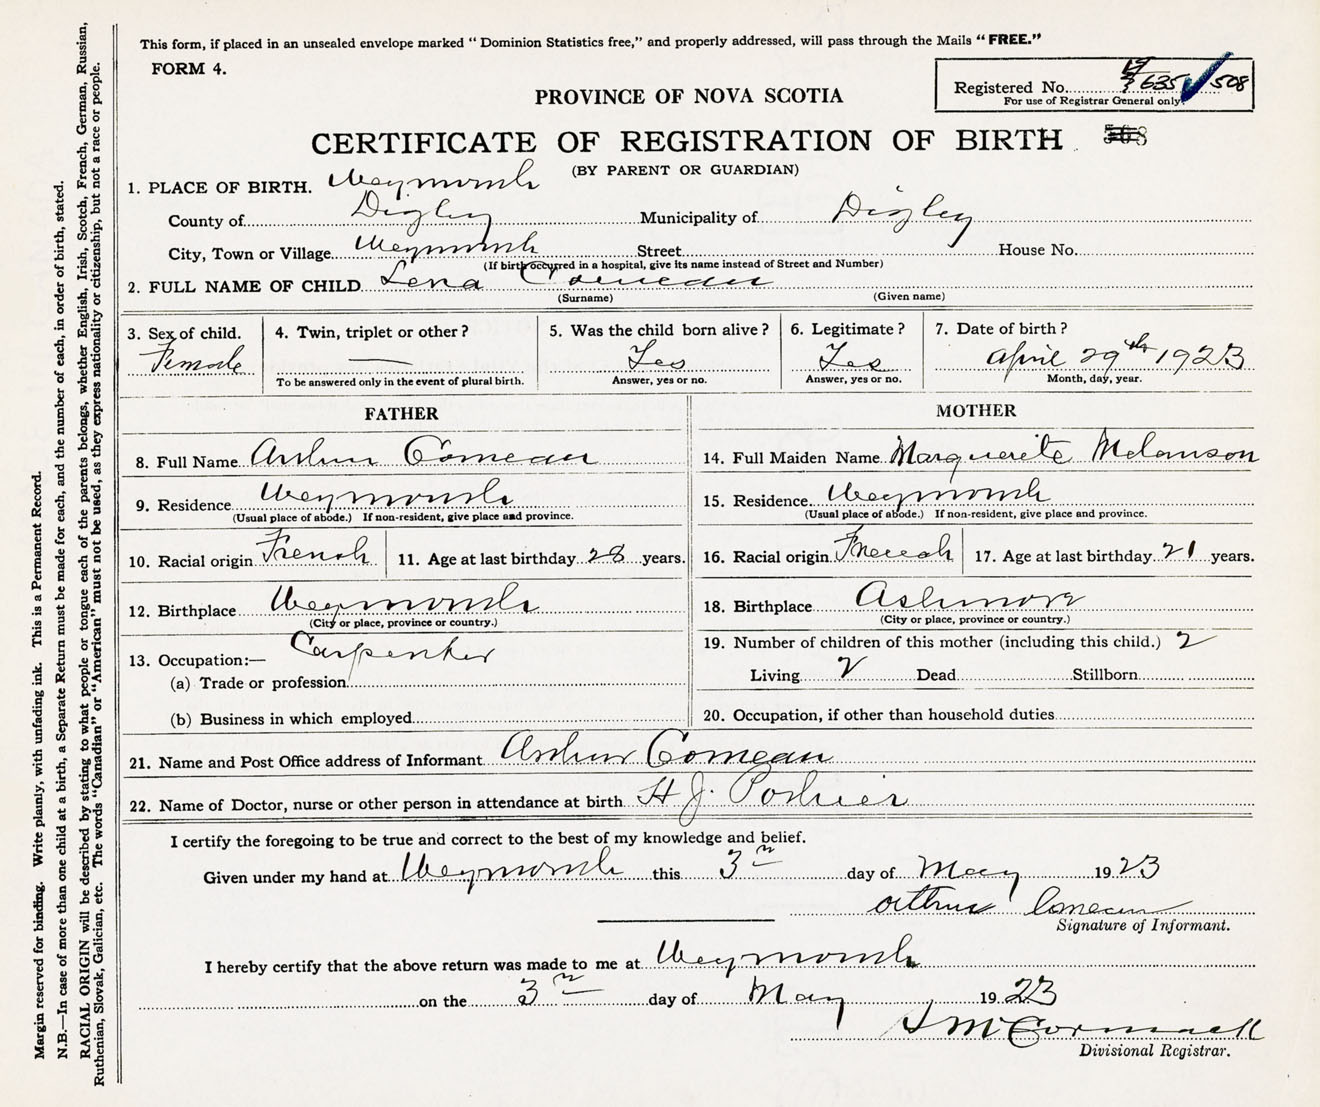 This form, if placed in an unsealed envelope marked “ Dominion Statistics free,” and properly addressed, will pass through the Mails “ FREE.”
FORM 4.
Registered No. 635 508
For use of Registrar General only
PROVINCE OF NOVA SCOTIA
CERTIFICATE OF REGISTRATION OF BIRTH
(BY PARENT OR GUARDIAN)
1. PLACE OF BIRTH. Weymouth
County of Digby Municipality of Digby
City, Town or Village Weymouth Street House No.
(If birth occurred in a hospital, give its name instead of Street and Number)
2. FULL NAME OF CHILD Lena Comeau
(Surname) (Given name)
3. Sex of child. 4. Twin, triplet or other ? 5. Was the child born alive ? 6. Legitimate ? 7. Date of birth ?
Female — Yes Yes April 29th 1923
To be answered only in the event of plural birth. Answer, yes or no. Answer, yes or no. Month, day, year.
FATHER MOTHER
8. Full Name Arthur Comeau 14. Full Maiden Name Marguerite Melanson
9. Residence Weymouth 15. Residence. Weymouth
(Usual place of abode.) If non-resident, give place and province. (Usual place of abode.) If non-resident, give place and province.
10. Racial origin French 11. Age at last birthday 28 years. 16. Racial origin French 17. Age at last birthday 21 years.
12. Birthplace Weymouth 18. Birthplace Ashmore
(City or place, province or country.) (City or place, province or country.)
13. Occupation:— Carpenter 19. Number of children of this mother (including this child.) 2
(a) Trade or profession Living 2 Dead Stillborn
(b) Business in which employed 20. Occupation, if other than household duties
21. Name and Post Office address of Informant Arthur Comeau
22. Name of Doctor, nurse or other person in attendance at birth H J. Pothier
I certify the foregoing to be true and correct to the best of my knowledge and belief.
Given under my hand at Weymouth this 3rd day of May 1923
Arthur Comeau
Signature of Informant.
I hereby certify that the above return was made to me at Weymouth
on the 3rd day of May 1923
McCormack
Divisional Registrar.
Margin reserved for binding. Write plainly, with unfading ink. This is a Permanent Record.
N.B.—In case of more than one child at a birth, a Separate Return must be made for each, and the number of each, in order of birth, stated.
RACIAL ORIGIN will be described by stating to what people or tongue each of the parents belongs, whether English, Irish, Scotch, French, German, Russian,
Ruthenian, Slovak, Galician, etc. The words “Canadian” or “American” must not be used, as they express nationality or citizenship, but not a race or people.